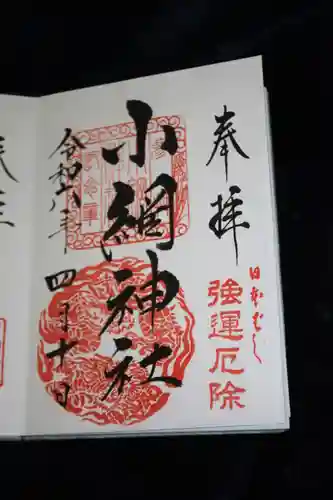 奉拝
日本ばし
強運厄除
小網神社
令和六年四月十日